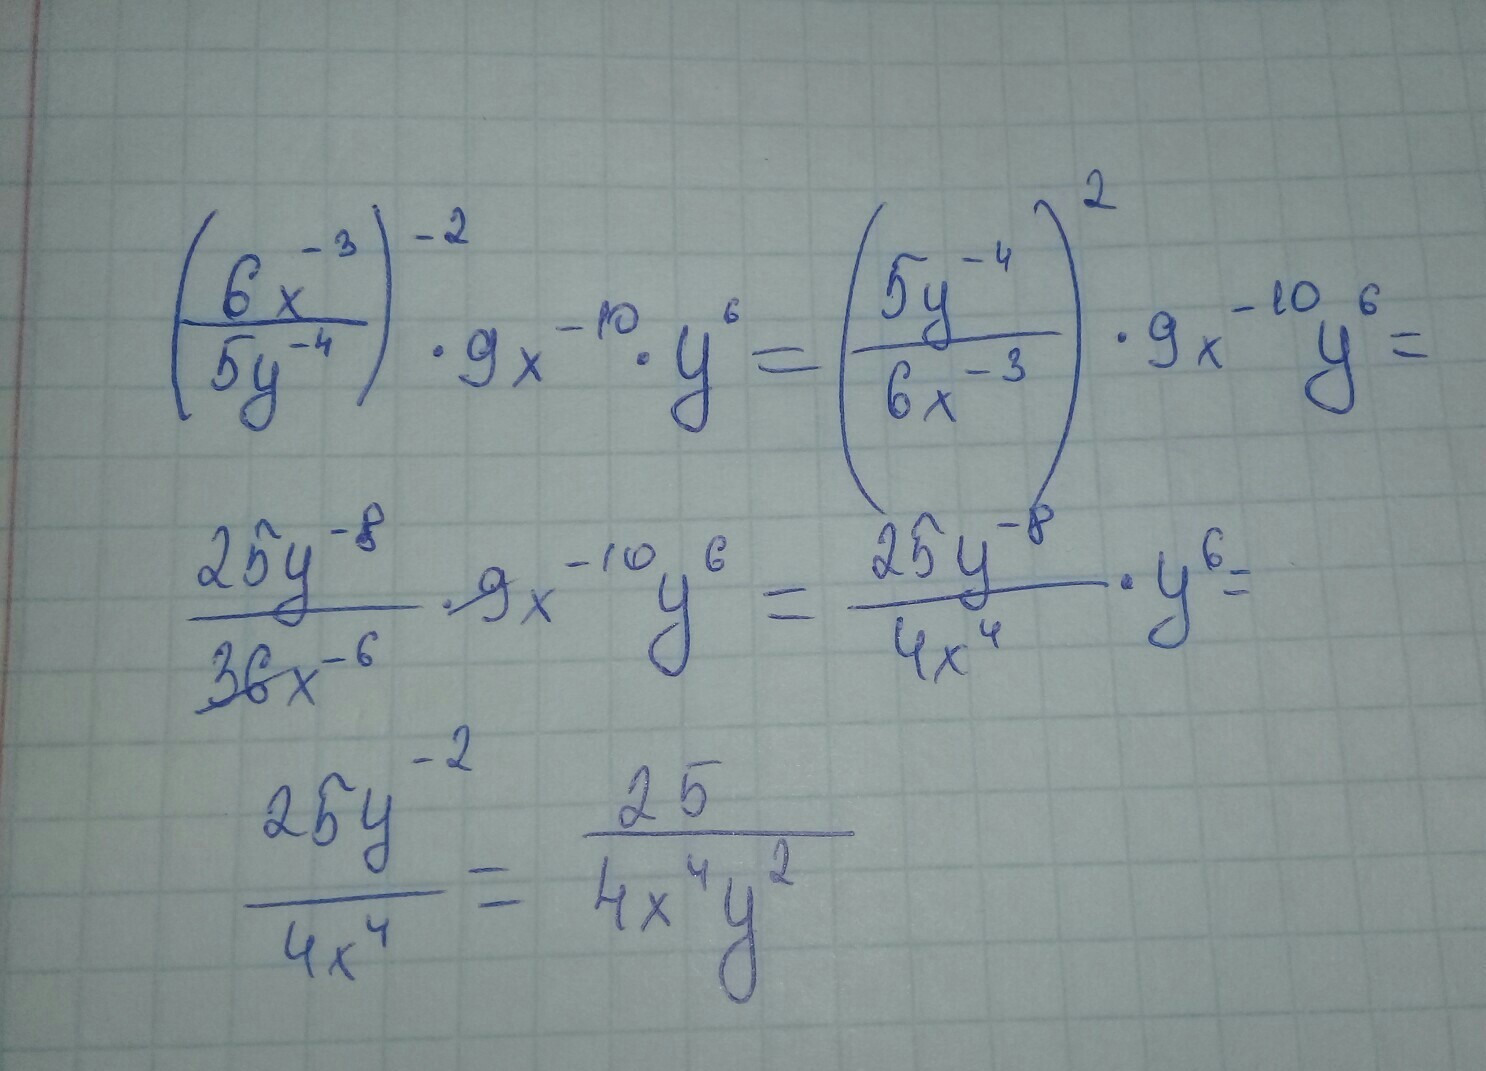 (6x⁻³/5y⁻⁴)⁻² · 9x⁻¹⁰ · y⁶ = (5y⁻⁴/6x⁻³)² · 9x⁻¹⁰y⁶ =
25y⁻⁸/36x⁻⁶ · 9x⁻¹⁰y⁶ = 25y⁻⁸/4x⁴ · y⁶ =
25y⁻²/4x⁴ = 25/4x⁴y²